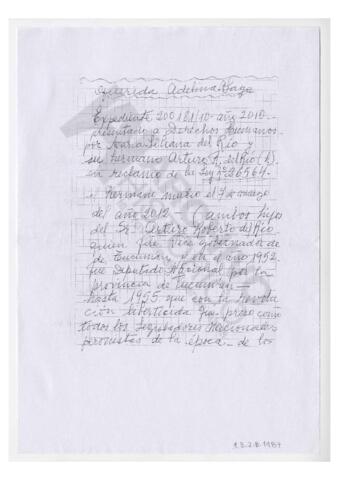 Querida Adelina
Expediente 200181/10 año 2010
presentado a Derechos Humanos
por María Liliana del Río y
su hermano Arturo R. del Río (h).
en reclamo de la Ley Nº 26564
hermano murió el 7 de
del año 2012 ambos hijos
del Sr. Arturo Roberto del Río
quien fué Vice gobernador de
de Tucumán y en el año 1952
fue Diputado Nacional por la
provincia de Tucumán
hasta 1955 que con la Revolu
ción liberticida fue preso como
todos los Legisladores Nacionales
peronistas de la época - de los
1.3.2.8.1987